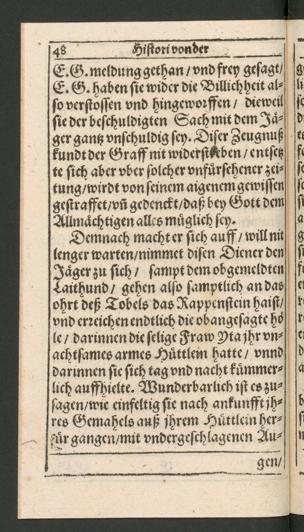 48 Histori von der
E. G. meldung gethan / vnd frey gesagt /
E. G. haben sie wider die Billichheit al-
so verstossen vnd hingeworffen / dieweil
sie der beschuldigten Sach mit dem Jä-
ger gantz vnschuldig sey. Diser Zeugnuß
kundt der Graff nit widerstreben / entsetz
te sich aber vber solcher vnfürsehener zei-
tung / wirdt von seinem aigenem gewissen
gestraffet / vñ gedenckt / daß bey Gott dem
Allmächtigen alles müglich sey.
Demnach macht er sich auff / will nit
lenger warten / nimmet disen Diener den
Jäger zu sich / sampt dem obgemeldten
Laithund / gehen also samptlich an das
ohrt deß Tobels das Rappenstein haist /
vnd erreichen endtlich die obangesagte hö
le / darinnen die selige Fraw Yta jhr vn-
achtsames armes Hüttlein hatte / vnnd
darinnen sie sich tag vnd nacht kümmer-
lich auffhielte. Wunderbarlich ist es zu-
sagen / wie einfeltig sie nach ankunfft jh-
res Gemahels auß jhrem Hüttlein her-
für gangen / mit vndergeschlagenen Au-
gen /